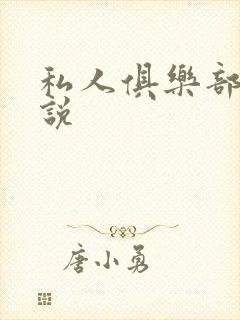 私人俱樂部
說
唐小勇